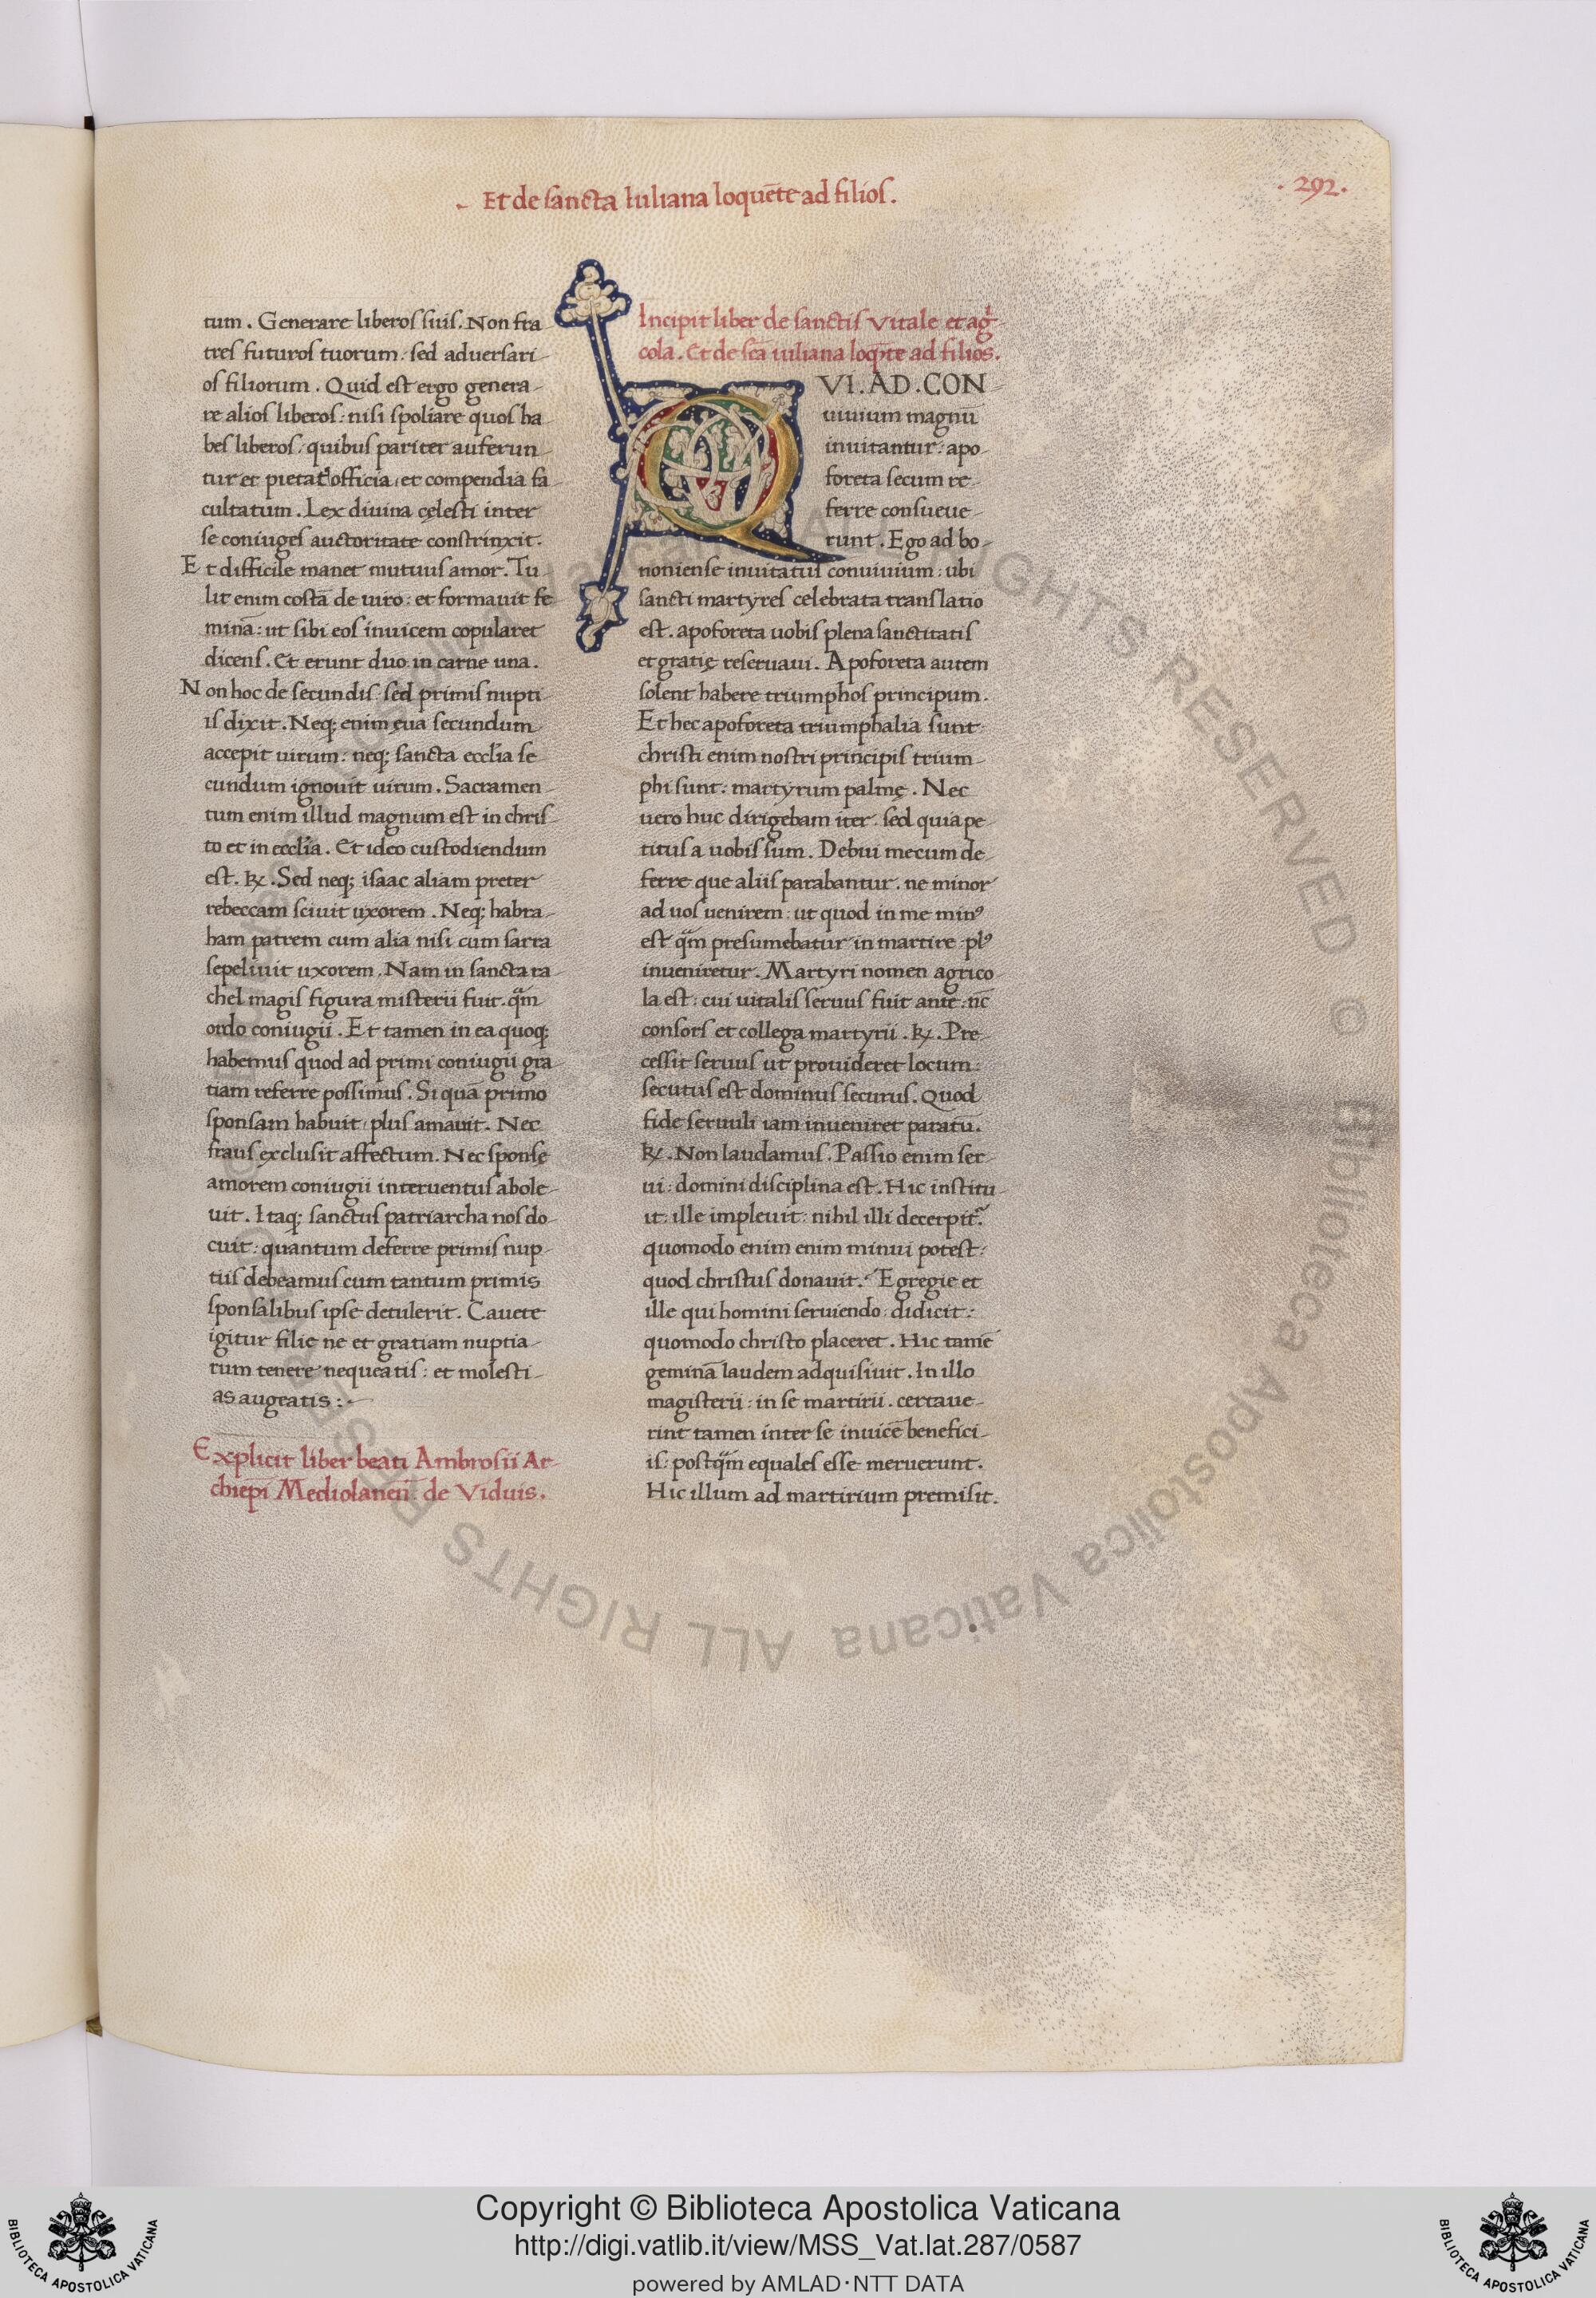 Et de sancta Iuliana loquēte ad filios.
. 292 .
tum . Generare liberos suis. Non fra
tres futuros tuorum: sed aduersari-
os filiorum . Quid est ergo genera-
re alios liberos: nisi spoliare quos ha
bes liberos: quibus pariter auferun
tur et pietat' officia, et compendia fa-
cultatum . Lex diuina cęlesti inter
se coniuges auctoritate constrinxit.
Et difficile manet mutuus amor. Tu
lit enim costā de uiro: et formauit fe
minā: ut sibi eos inuicem copularet
dicens. Et erunt duo in carne una.
Non hoc de secundis: sed primis nupti
is dixit. Neq; enim eua secundum
accepit uirum: neq; sancta ecclīa se
cundum ignouit uirum. Sacramen-
tum enim illud magnum est in chris-
to et in ecclīa. Et ideo custodiendum
est. R̷. Sed neq; isaac aliam preter
rebeccam sciuit uxorem . Neq; habra-
ham patrem cum alia nisi cum sarra
sepeliuit uxorem. Nam in sancta ra
chel magis figura misterii fuit. qᷓm
ordo coniugii. Et tamen in ea quoq;
habemus quod ad primi coniugii gra
tiam referre possimus. Si quā primo
sponsam habuit: plus amauit. Nec
fraus exclusit affectum. Nec sponse
amorem coniugii interuentus abole-
uit. Itaq; sanctus patriarcha nos do-
cuit: quantum deferre primis nup-
tiis debeamus cum tantum primis
sponsalibus ipse detulerit. Cauete
igitur filie ne et gratiam nuptia-
rum tenere nequeatis: et molesti-
as augeatis :-
Explicit liber beati Ambrosii Ar-
chiep̄i Mediolaneñ de Viduis.
Incipit liber de sanctis Vitale et agͥ-
cola. Et de sc̄a iuliana loq̄te ad filios.
QVI. AD. CON
uiuium magnū
inuitantur: apo-
foreta secum re-
ferre consueue-
runt. Ego ad bo-
noniense inuitatus conuiuium: ubi
sancti martyres celebrata translatio
est. apoforeta uobis plena sanctitatis
et gratię reseruaui. Apoforeta autem
solent habere triumphos principum.
Et hec apoforeta triumphalia sunt:
christi enim nostri principis trium-
phi sunt: martyrum palmę. Nec
uero huc dirigebam iter. sed quia pe-
titus a uobis sum. Debui mecum de-
ferre que aliis parabantur. ne minor
ad uos uenirem: ut quod in me minꝰ
est qᷓm presumebatur in martire plꝰ
inueniretur. Martyri nomen agrico-
la est: cui uitalis seruus fuit ante: nc̄
consors et collega martyrii. R̷. Pre-
cessit seruus ut prouideret locum:
secutus est dominus securus. Quod
fide seruuli iam inueniret paratū.
R̷. Non laudamus. Passio enim ser-
ui: domini disciplina est. Hic institu-
it: ille impleuit: nihil illi decerpit᷑.
quomodo enim enim minui potest:
quod christus donauit. Egregie et
ille qui homini seruiendo: didicit:
quomodo christo placeret. Hic tamē
geminā laudem adquisiuit. In illo
magisterii: in se martirii. certaue-
rint tamen inter se inuicē benefici-
is: postqᷓm equales esse meruerunt.
Hic illum ad martirium premisit.
© Biblioteca Apostolica Vaticana ALL RIGHTS RESERVED
Copyright © Biblioteca Apostolica Vaticana
http://digi.vatlib.it/view/MSS_Vat.lat.287/0587
powered by AMLAD·NTT DATA
BIBLIOTECA APOSTOLICA VATICANA
BIBLIOTECA APOSTOLICA VATICANA